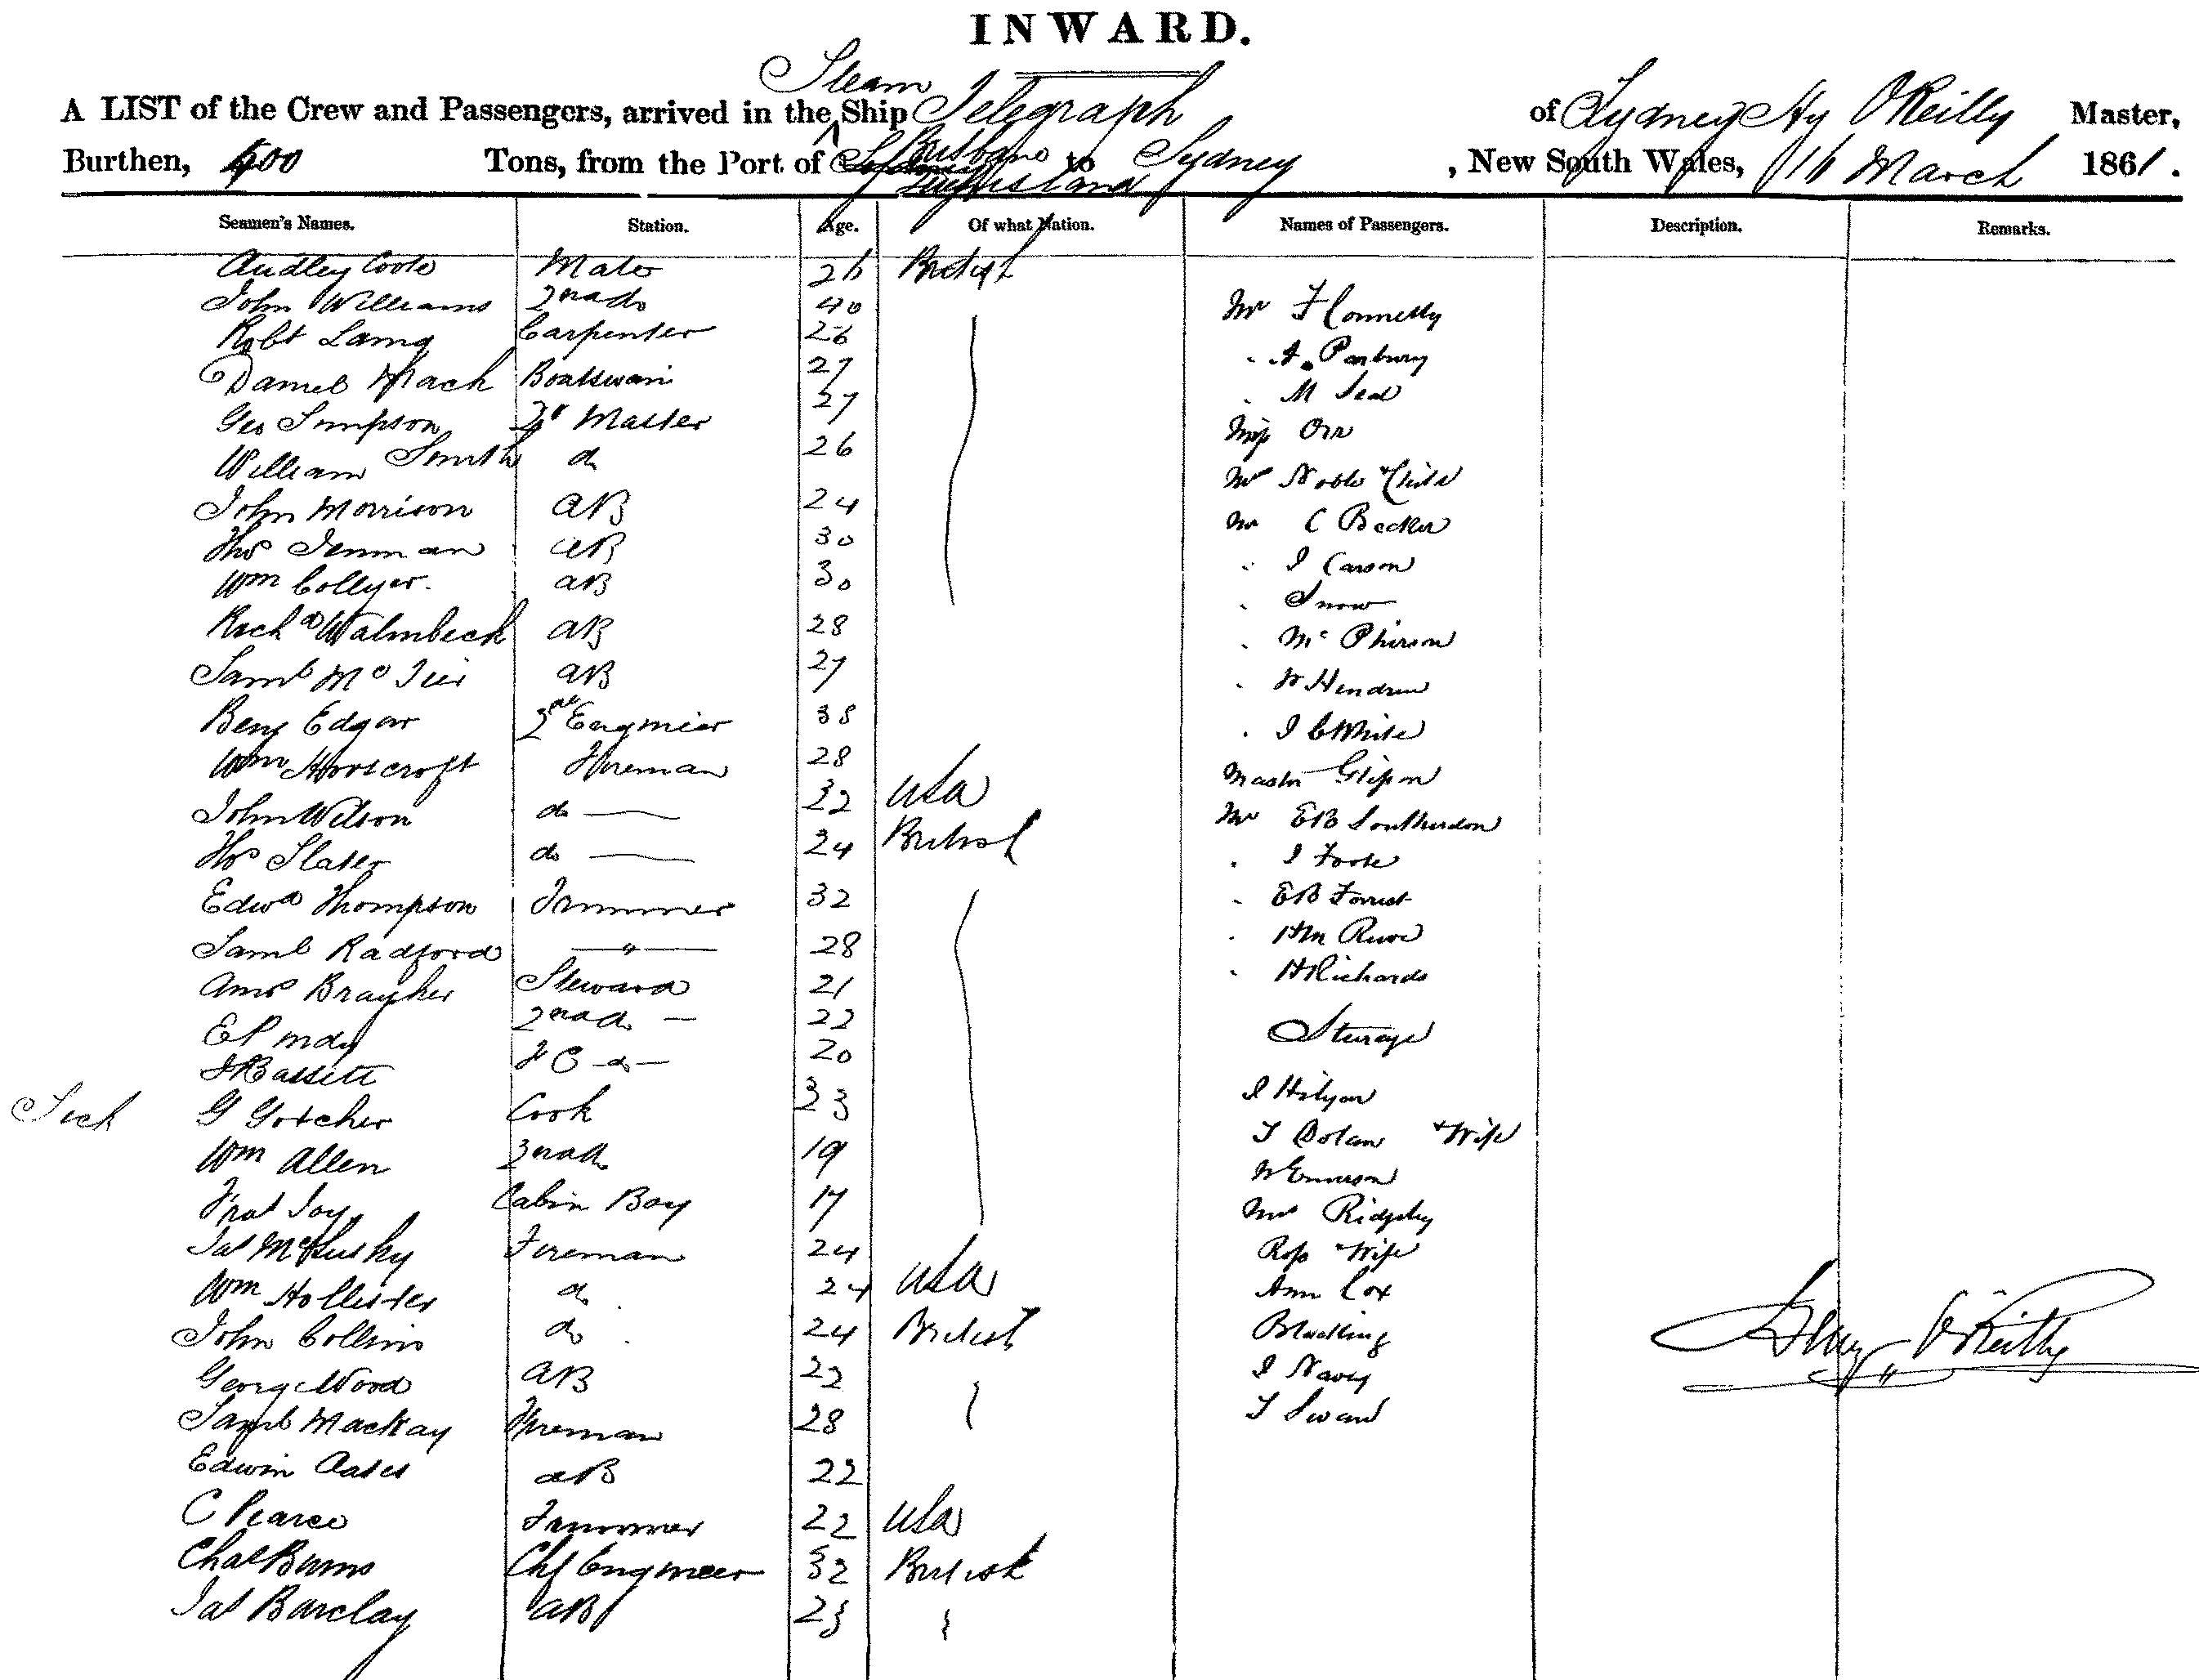 INWARD.
Steam
A LIST of the Crew and Passengers, arrived in the Ship Telegraph of Sydney Hy O'Reilly Master,
Brisbane
Burthen, 400 Tons, from the Port of to Sydney, New South Wales, 16 March 1861.
Queensland
Seamen's Names. Station. Age. Of what Nation. Names of Passengers. Description. Remarks.
Audley Coote Mate 26 British
John Williams 2nd do 40 Mr F Connelly
Robt Laing Carpenter 26
Daniel Boatswain 27 " A. Panbury
Geo Simpson Qr Master 27 " M
William Smith do 26 Miss Orr
John Morrison AB 24 Mr Noble & Child
Thos Denman AB 30 Mr C Becker
Wm Collyer. AB 30 " J Carson
Richd Walmbeck AB 28 " Snow
Saml Mc AB 27 " McPherson
Benj Edgar 2nd Engineer 38 " Hendren
Wm Horscroft Fireman 28 " J C White
John Wilson do 32 USA Master Gipson
Thos Slater do 24 British Mr EB Southerdon
Edwd Thompson Trimmer 32 " J Foote
Saml Radford " 28 " EB Forrest
Amos Steward 21 " HM
E P 2nd do 22 " H Richards
J Bassett F C do 20 Sturage
Sick G Gotcher Cook 33 J Hilyar
Wm Allen 2nd do 19 T Dolan & Wife
Joy Cabin Boy 17 W Emerson
Jas McLusky Fireman 24 Mrs Ridgley
Wm Hollister do 24 USA Ross & Wife
John Collins do 24 British Ann Cox
George Wood AB 22
Saml Mackay Fireman 28 J Navy
Edwin Oates AB 22 T Swan
C Pearce Trimmer 22 USA
Chas Burns Chf Engineer 32 British
Jas Barclay AB 23
Henry O'Reilly